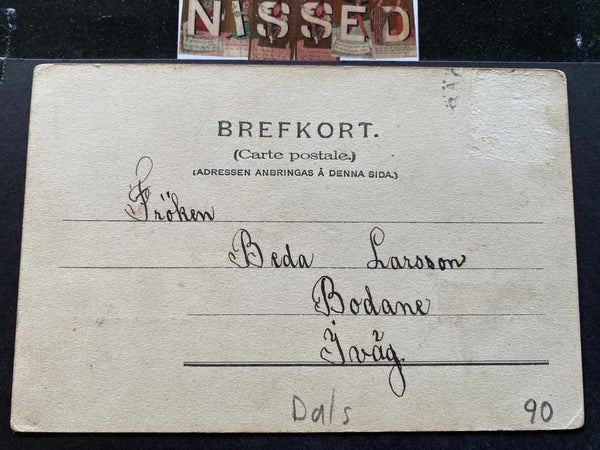 NISSED
BREFKORT.
(Carte postale.)
(ADRESSEN ANBRINGAS Å DENNA SIDA.)
Fröken
Beda Larsson
Bodane
Ivåg
Dals
90